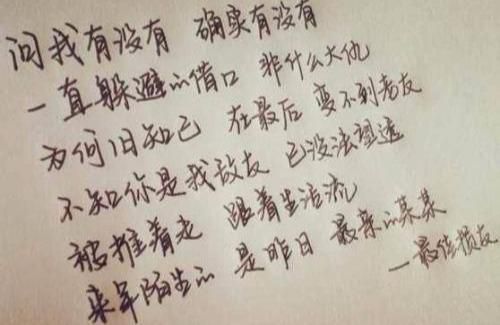 问我有没有 确实有没有
一直躲避的借口 非什么大仇
为何旧知己 在最后 变不到老友
不知你是我敌友 已没法望透
被推着走 跟着生活流
来年陌生的 是昨日 最亲的某某
—最佳损友